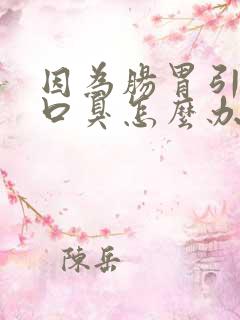 因為腸胃引
口臭怎麼办
陳岳